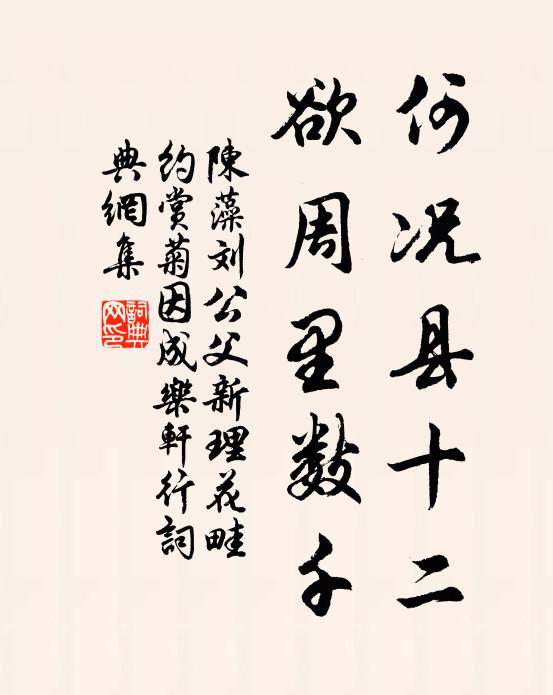 何况县十二
欲周里数千
陳藻刘公父新理花畦
約賞菊因成樂軒行詞
典網集
詞典网印